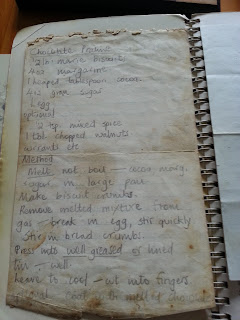 Chocolate
1/2 lb marie biscuits
4 oz margarine
1 heaped tablespoon cocoa
4 oz sugar
1 egg
optional
1/2 tsp mixed spice
1 tbl. chopped walnuts
currants etc
Method
Melt not boil - cocoa marg.
sugar in large pan.
Make biscuit crumbs.
Remove melted mixture from
gas - break in egg, stir quickly
Stir in bread crumbs.
Press into well greased or lined
tin - well
Leave to cool - cut into fingers
coat with melted choc